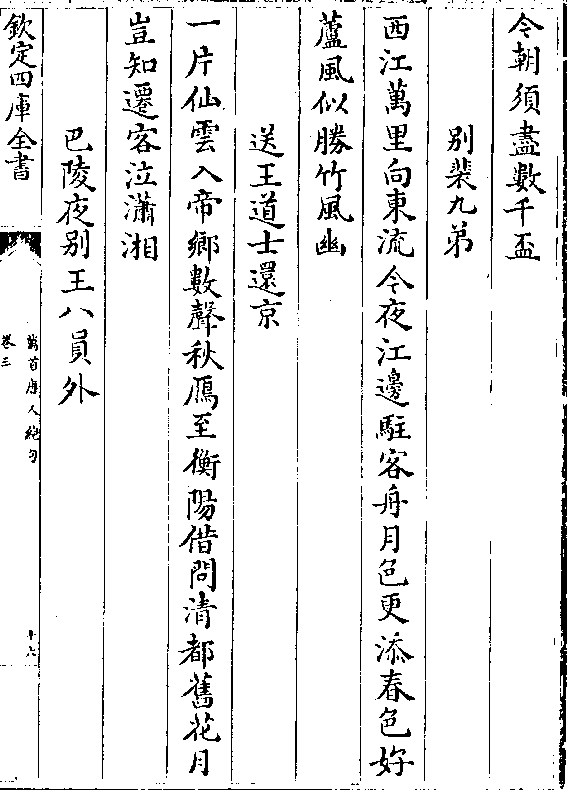 今朝須盡數千盃
別裴九弟
西江萬里向東流今夜江邊駐客舟月色更添春色好
蘆風似勝竹風幽
送王道士還京
一片仙雲入帝鄉數聲秋鴈至衡陽借問清都舊花月
豈知遷客泣瀟湘
巴陵夜别王八員外
欽定四庫全書
萬首唐人絶句
卷三
十六